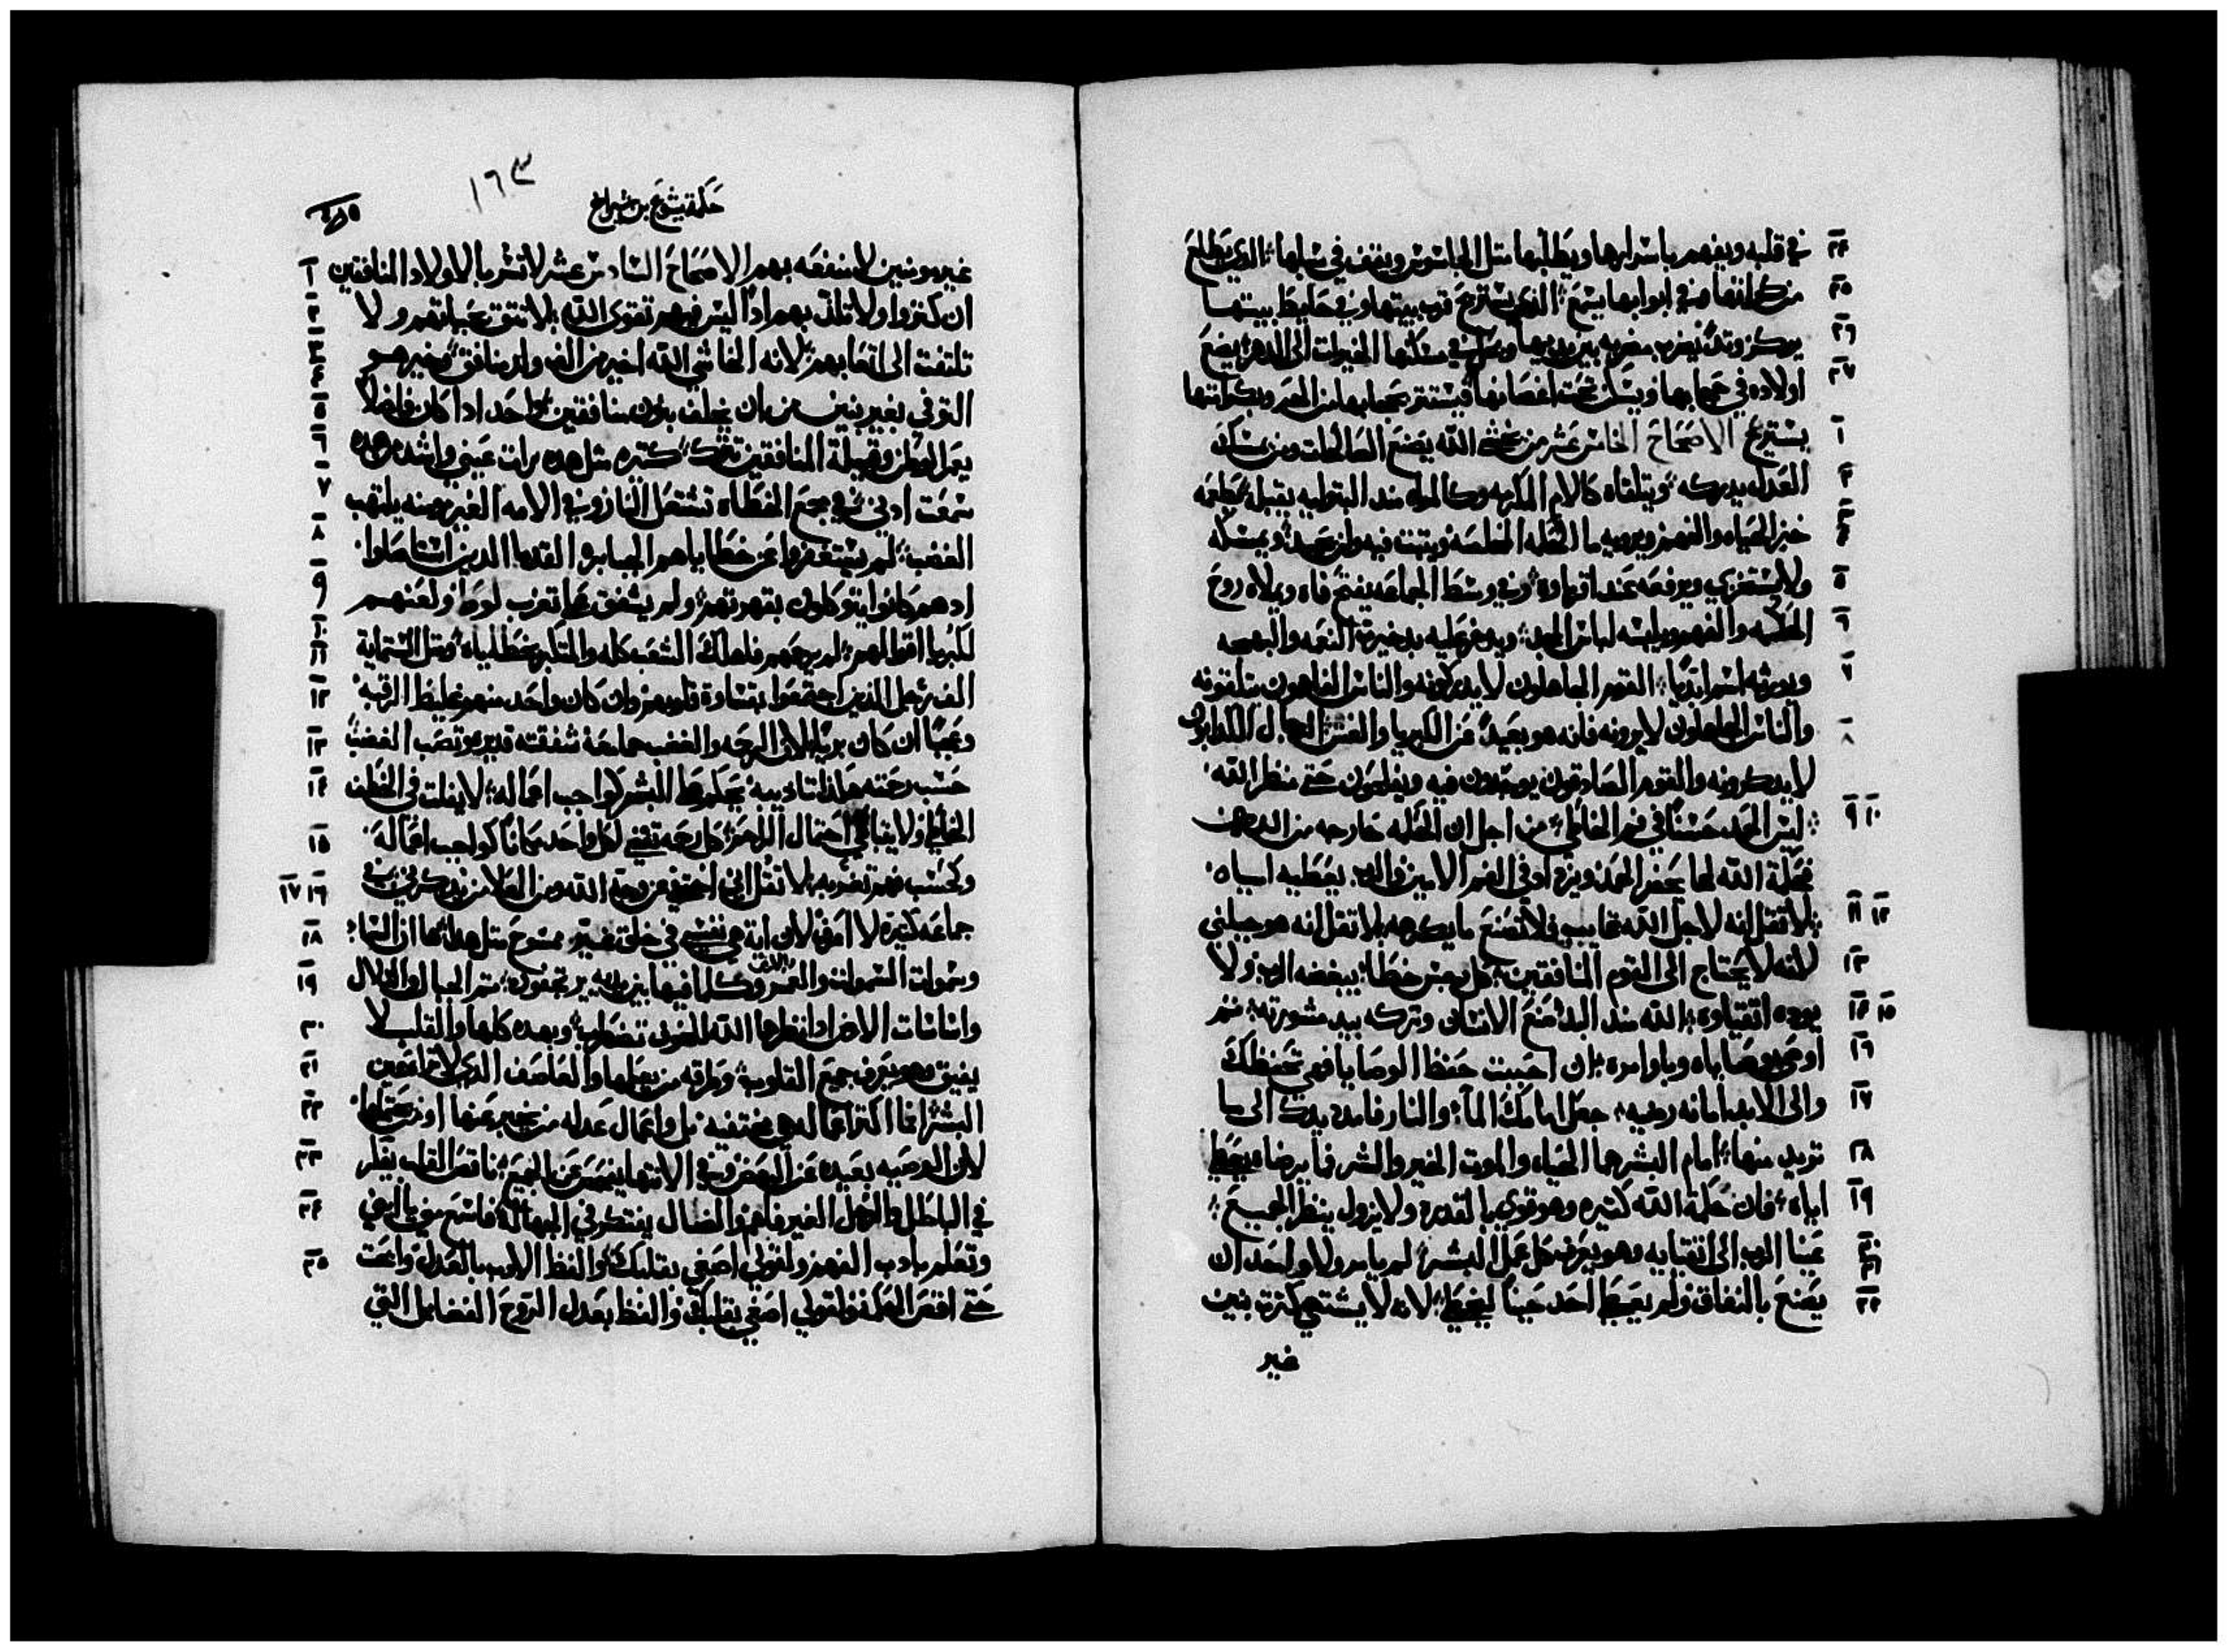 في قلبه ويفهم باسرارها ويطلبها مثل الجاسوس ويقف في سبلها الذي يتطلع ٢٤
من كواتها وفي ابوابها يسمع الذي يستريح قرب بيتها وفي حايط بيتها ٢٥
يركز وتدًا ينصب مضربه بين يديها في مسكنها الخيرات الى الدهر يضع ٢٦
اولاده في حجابها ويسكن تحت اغصانها فيستتر بحجابها من الحر وبكرامتها ٢٧
يستريح الاصحاح الخامس عشر من يخشى الله يصنع الصالحات ومن يمسك ١
العدله يدركه ويتلقاه كالام المكرمه وكالمراه منذ البتوليه يقبله يطعمه ٢
خبز الحياه والفهم ويرويه ما الحكمه المخلصه ويثبت فيه ولن يحيد ويمسكه ٣ ٤
ولا يستخزي ويرفعه عند اقرباوه وفي وسط الجماعه يفتح فاه ويملاه روح ٥
الحكمه والفهم ويلبسه لباس المجد ويدخر عليه بدخيرة النعمه والبهجه ٦
ويورثه اسم ابديًا القوم الجاهلون لا يدركونه والناس الفاهمون يتلقونه ٧
والناس الجاهلون لا يرونه فانه هو بعيدً عن الكبريا والغش الرجال الكدابون ٨
لا يدكرونه والقوم الصادقون يوجدون فيه ويفلحون حتى منظر الله
ليس الحمد حسنًا في فم الخاطي من اجل ان الحكمه خارجه من الرب ٩ ١٠
فحكمة الله لها يحضر الحمد ويزداد في الفم الامين والرب يعطيه اياه
لا تقل انه لاجل الله تغايب فلا تصنع ما يكرهه لا تقل انه هو جبلني ١١ ١٢
لانه لا يحتاج الى القوم المنافقين كل رجس خطا يبغضه الرب ولا ١٣
يوده اتقياوه الله منذ البد صنع الانسان وتركه بيد مشورته ثم ١٤ ١٥
اوضع وصاياه وباوامره ان احببت حفظ الوصايا فهي تحفظك ١٦
والى الابد امانه رضيه جعل امامك الما والنار فامدد يدك الى ما ١٧
تريد منها امام البشر هما الحياه والموت الخير والشر فما يرضاه يعطى ١٨
اياه فان حكمة الله كثيره وهو قوي بالقدره ولا يزول ينظر الجميع ١٩
عينا الرب الى اتقيايه وهو يعرف كل عمل البشر لم يامر ولا واحد ان ٢٠ ٢١
يصنع بالنفاق ولم يعط احد حينًا ليخطي لانه لا يشتهي كثرة بنين ٢٢
غير
١٦٣
حكمة يشوع بن شيراخ
غير مومنين لا منفعه بهم الاصحاح السادس عشر لا تسر بالاولاد المنافقين ١
ان كثروا ولا تلذ بهم اذا ليس فيهم تقوى الله لا تثق بحياتهم ولا ٢
تلتفت الى اتعابهم لانه الخاشي الله اخير من الف ولد منافق وخير هو ٣ ٤
التوفي بغير بنين من ان يخلف بنون منافقين واحد اذا كان فاضلًا ٥
يعمر الوطن وقبيلة المنافقين تهلك كثيره مثل هده رات عيني واشد من هده ٦
سمعت ادني في مجمع الخطاه تشتعل النار وفي الامه الغير مومنه يلتهب ٧
الغضب لم يستغفروا عن خطاياهم الجبابره القدما الدين استاصلوا ٨
ادهم كانوا يتوكلون بقوتهم ولم يشفق على تغرب لوط ولعنهم ٩
لكبريا اقوالهم لم يرحمهم فاهلك الشعب كله والمتكبر بخطاياه ومثل الستماية ١٠ ١١
الف رجل الذين اجتمعوا بقساوة قلوبهم وان كان واحد منهم غليظ الرقبه ١٢
وعجبًا ان كان بريًا لان الرحمه والغضب جامعة شفقته قدير يصب الغضب ١٣
حسب رحمته هكذا تاديبه يحكم على البشر كواجب اعماله لا يفلت في الخطف ١٤
الخاطي ولا يتباقى احتمال الراحم كل رحمه تصنع لكل واحد مكانًا كواجب اعماله ١٥
وكحسب فهم تغربه لا تقل اني اختفي من وجه الله ومن العلا من يدكرني في ١٦ ١٧
جماعه كثيره لا اعرف لان اية هي نفسي في خلق غير ممسوح مثل هدا ها ان السما ١٨
وسموات السموات والغمر والارض وكلما فيها بنظره يرتجفون ثم الجبال والتلال ١٩
واساسات الارض اذا نظرها الله الخوف تضطرب وبهده كلها والقلب لا ٢٠
يفيق وهو يعرف جميع القلوب وطرقه من يفهمها والعاصف الذي لا تراه عين ٢١
البشر انما اكثر اعماله هي مختفيه بل واعمال عدله من يخبر عنها او من يحتملها ٢٢
لان الوصيه بعيده عن البعض وفي الانتها يفحص عن الجميع ناقص القلب يفكر ٢٣
في الباطل والرجل الغير فاهم والضال يفتكر في الجهاله فاسمع مني يا ابني ٢٤
وتعلم بادب الفهم ولقولي اصغي بقلبك والفظ الادب بالعدل وابحث ٢٥
حتى اقص الحكمه ولقولي اصغي بقلبك والفظ بعدل الروح الفضايل التي